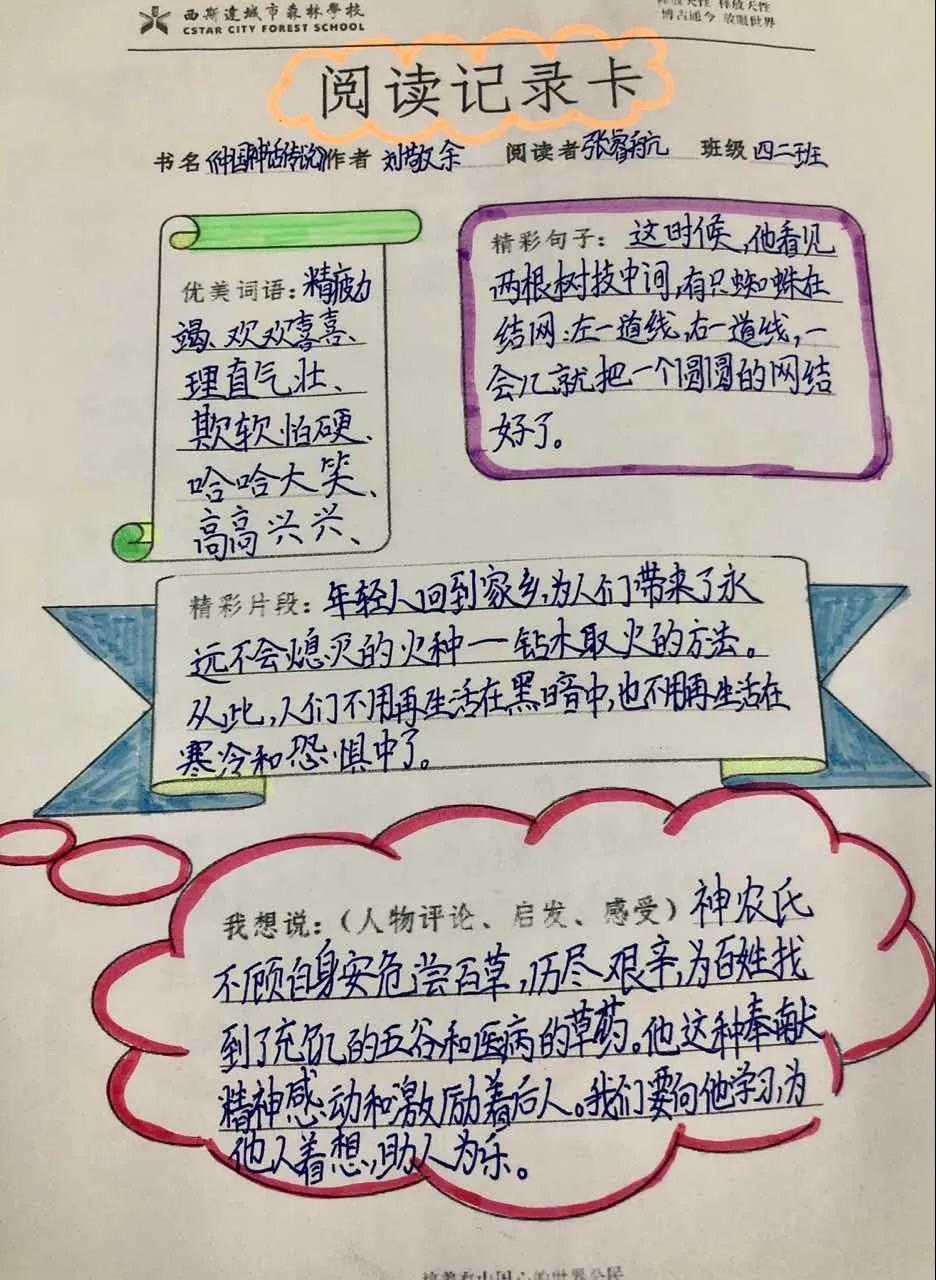 西斯达城市森林學校
CSTAR CITY FOREST SCHOOL
释放天性 释放天性
博古通今 放眼世界
阅读记录卡
书名《中国神话传说》作者 刘敬余 阅读者张睿航 班级 四二班
优美词语：精疲力
竭、欢欢喜喜、
理直气壮、
欺软怕硬、
哈哈大笑、
高高兴兴、
精彩句子：这时候，他看见
两根树技中间，有只蜘蛛在
结网：左一道线，右一道线，一
会儿就把一个圆圆的网结
好了。
精彩片段：年轻人回到家乡，为人们带来了永
远不会熄灭的火种一钻木取火的方法。
从此，人们不用再生活在黑暗中，也不用再生活在
寒冷和恐惧中了。
我想说：（人物评论、启发、感受）神农氏
不顾自身安危尝百草，历尽艰辛，为百姓找
到了充饥的五谷和医病的草药。他这种奉献
精神感动和激励着后人。我们要向他学习，为
他人着想，助人为乐。